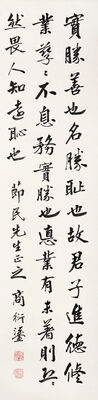 實勝善也名勝恥也故君子進德修
業孳孳不息務實勝也德業有未著則恐
然畏人知遠恥也
節民先生正之 商衍鎏